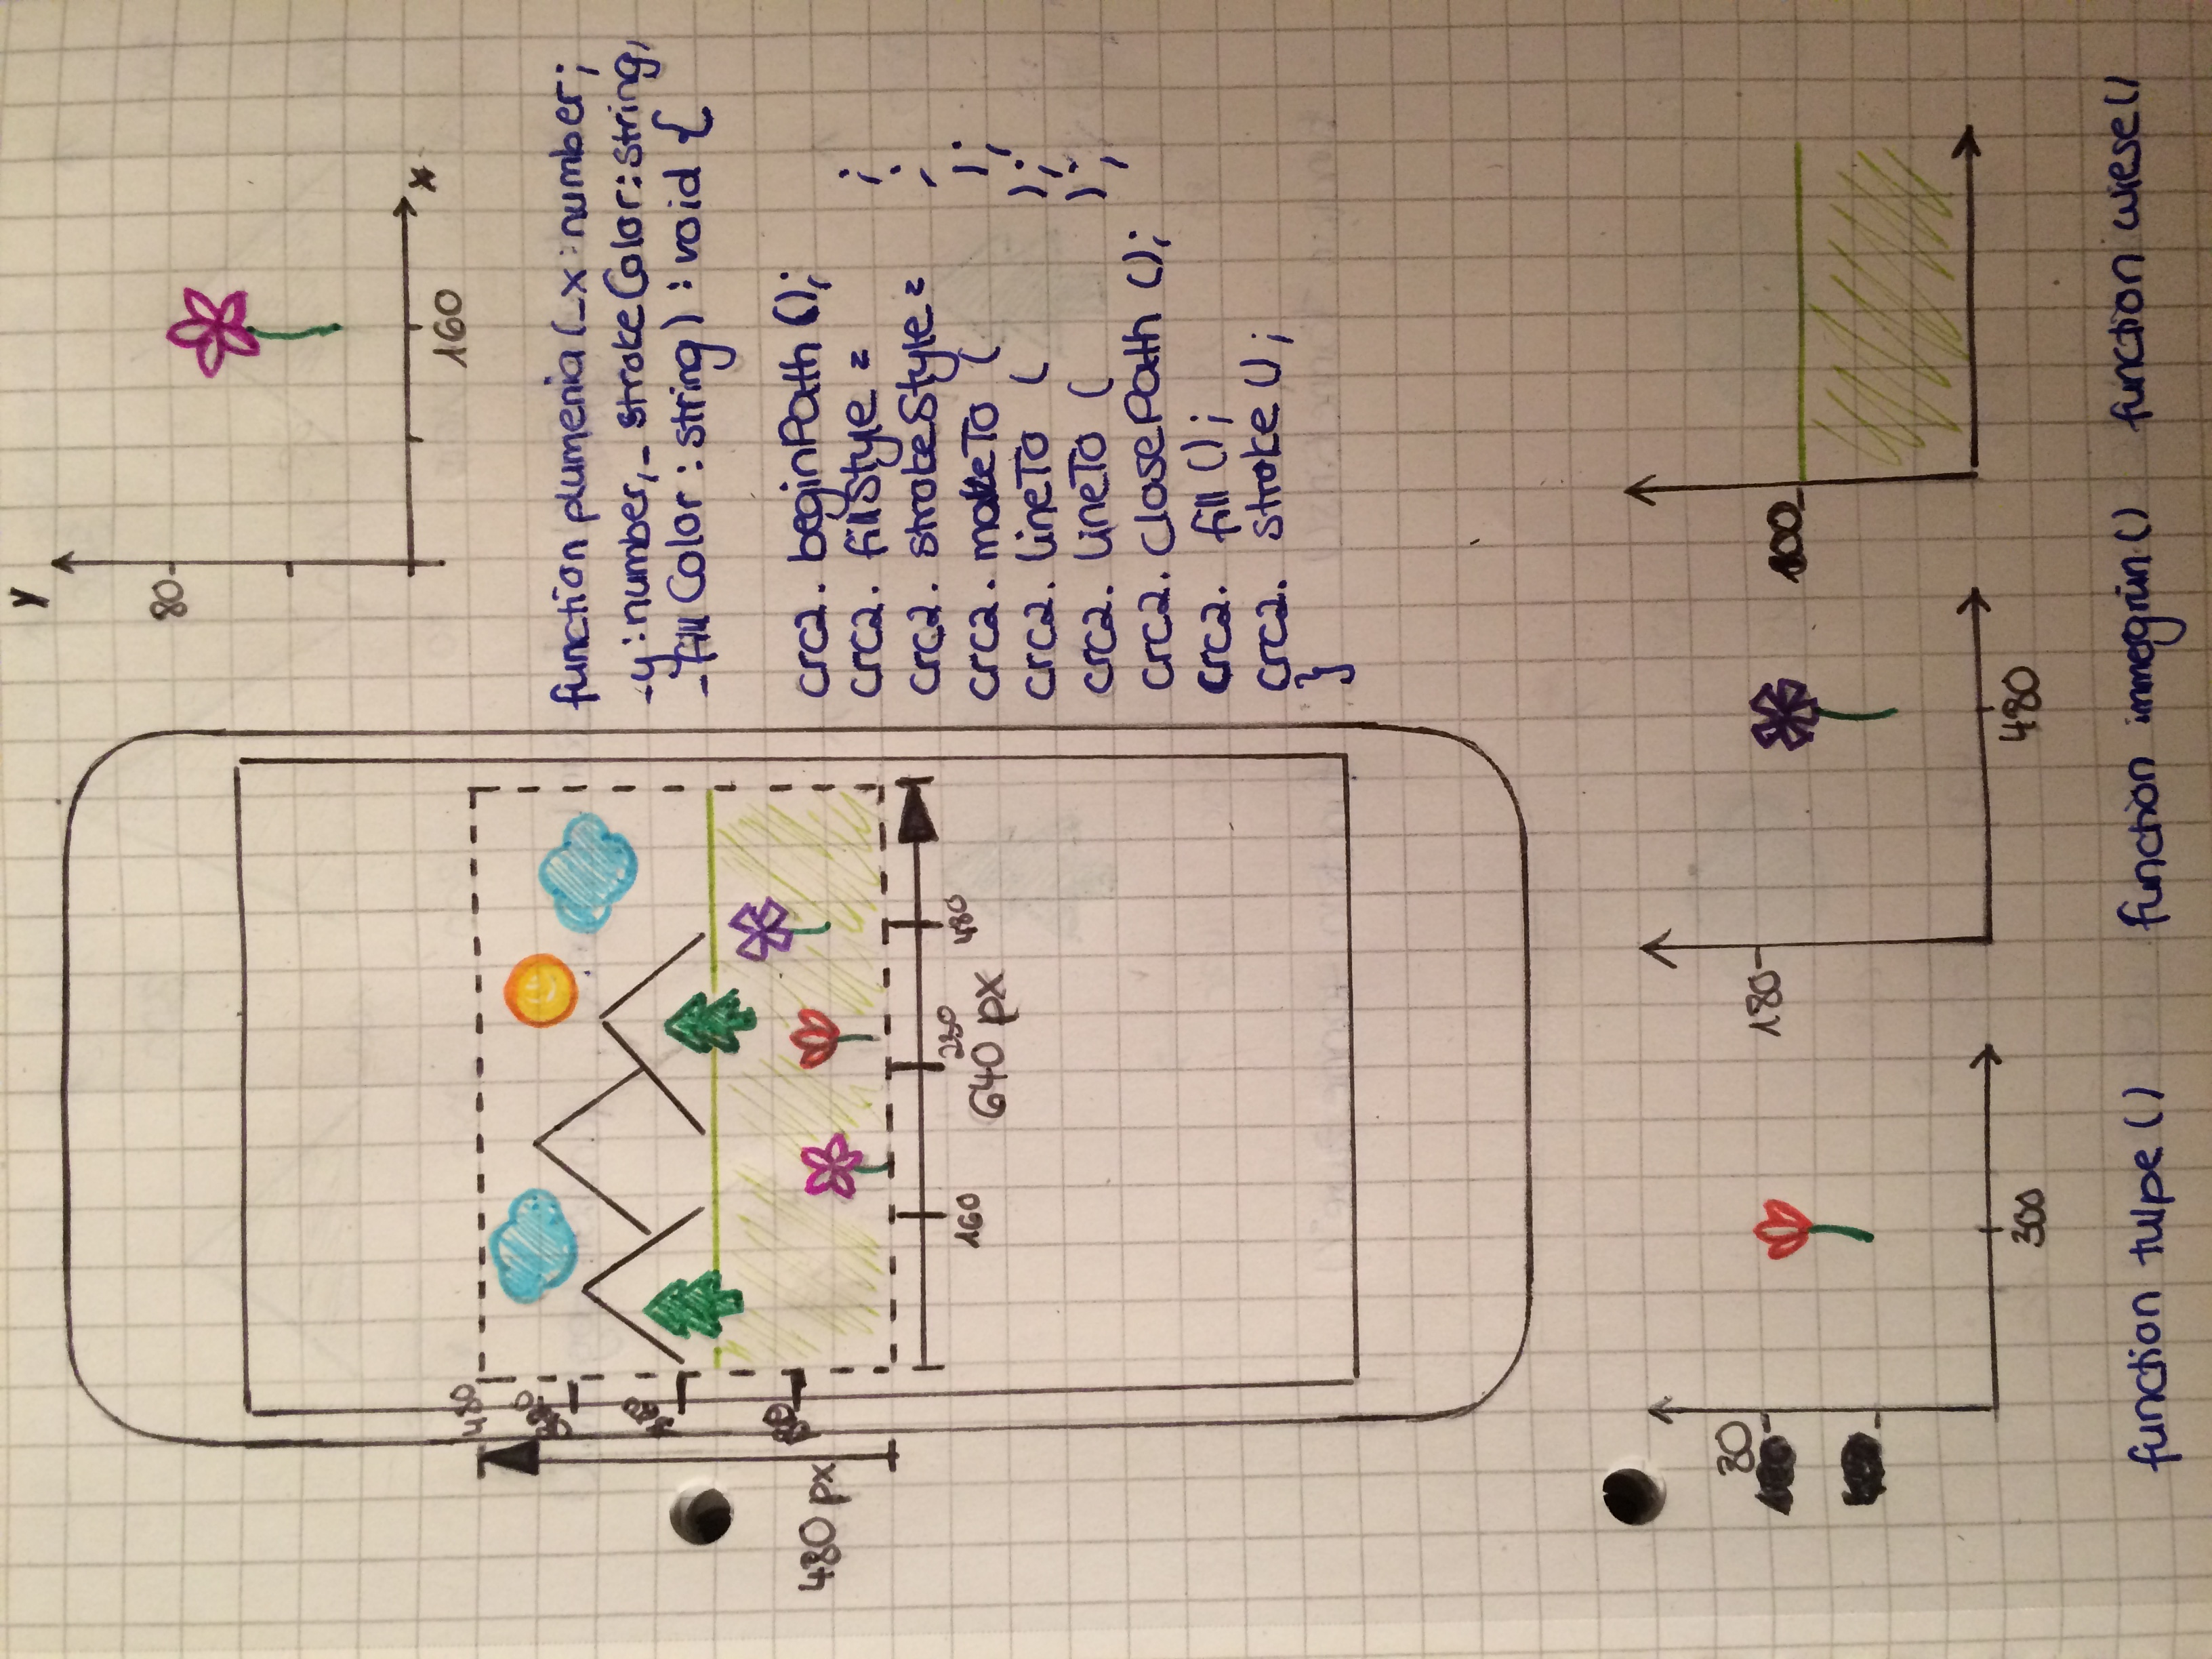 y
80
160
x
function plumenia (_x:number;
_y:number,_strokeColor:string,
_fillColor:string):void {
crc2.beginPath();
crc2.fillStyle = ;
crc2.strokeStyle = ;
crc2.moveTo ( );
crc2.lineTo ( );
crc2.lineTo ( );
crc2.closePath ();
crc2. fill ();
crc2. stroke ();
}
480
480 px
160
480
640 px
30
300
function tulpe ()
180
480
function immegrün ()
100
function wiese ()